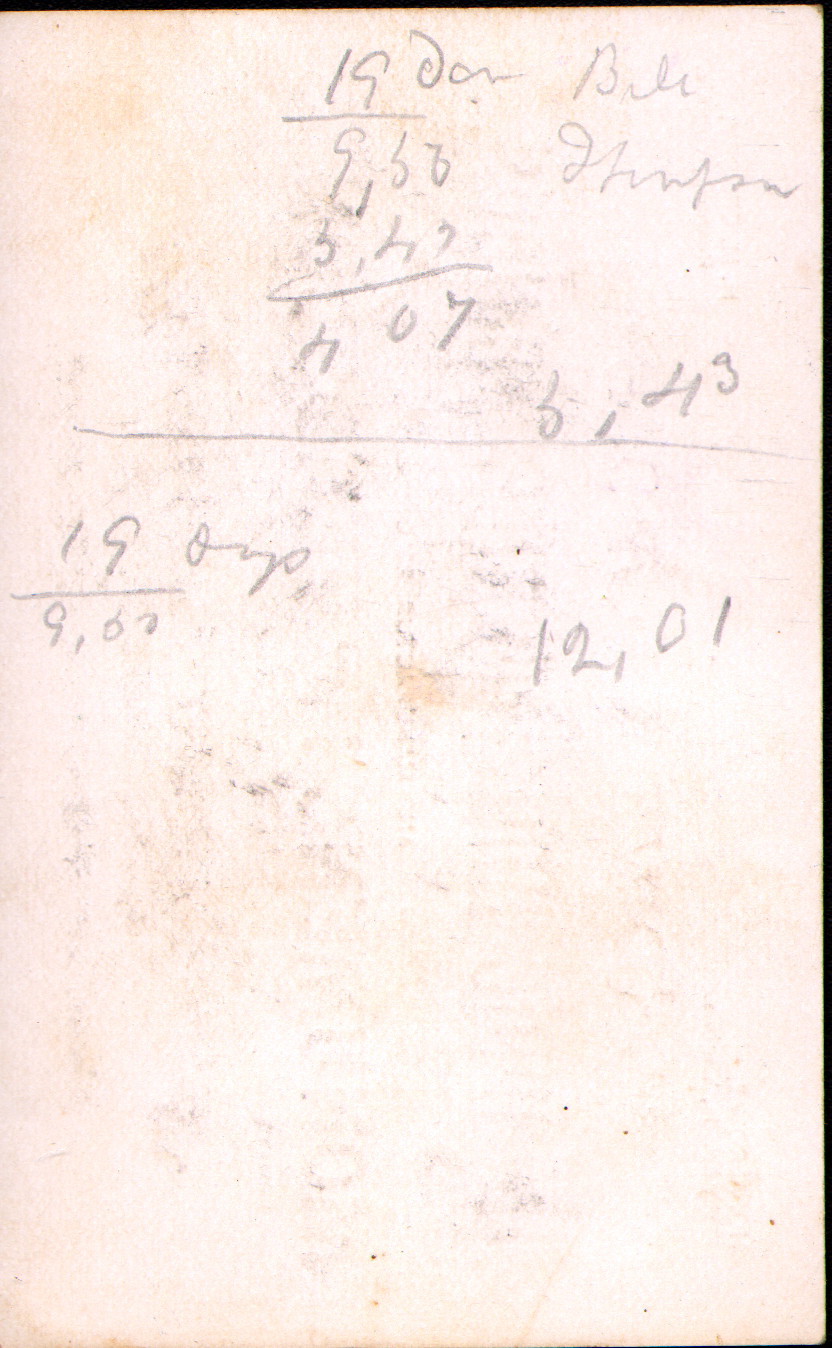 19 Dar Bill
9,50
5,43
4 07
5,43
19 days
9,50
12,01